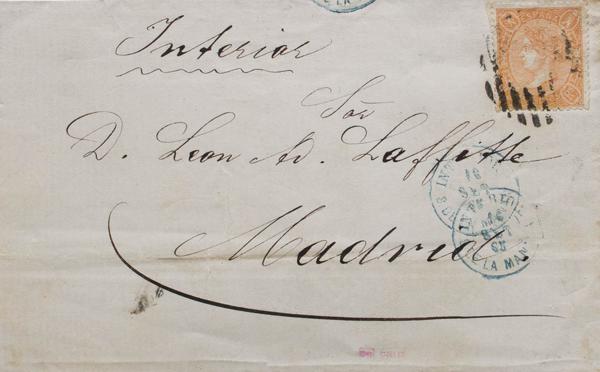 Interior
Sor
D. Leon Ad. Laffitte
Madrid
LA MAN